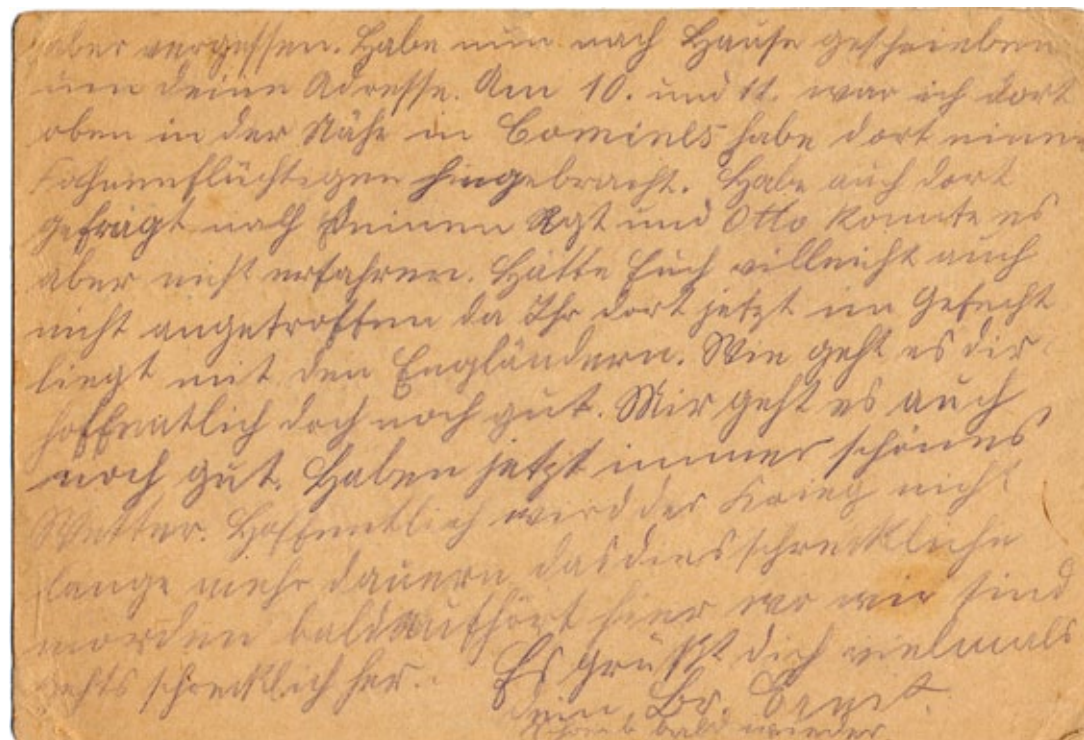 aber vergessen. Habe nun nach Hause geschrieben
um deine Adresse. Am 10. und 11. war ich dort
oben in der Nähe in Comines habe dort einen
Fahnenflüchtigen hingebracht. Habe auch dort
gefragt nach Deinen Rgt und Otto konnte es
aber nicht erfahren. Hätte Euch villeicht auch
nicht angetroffen da Ihr dort jetzt im Gefecht
liegt mit den Engländern. Wie geht es dir
hoffentlich doch noch gut. Mir geht es auch
noch gut. Haben jetzt immer schönes
Wetter. Hoffentlich wird der Krieg nicht
lange mehr dauern das dies schreckliche
morden bald aufhört hier wo wir sind
gehts schrecklich her. Es grüßt dich vielmals
dein Br. Ernst.
Schreib bald wieder